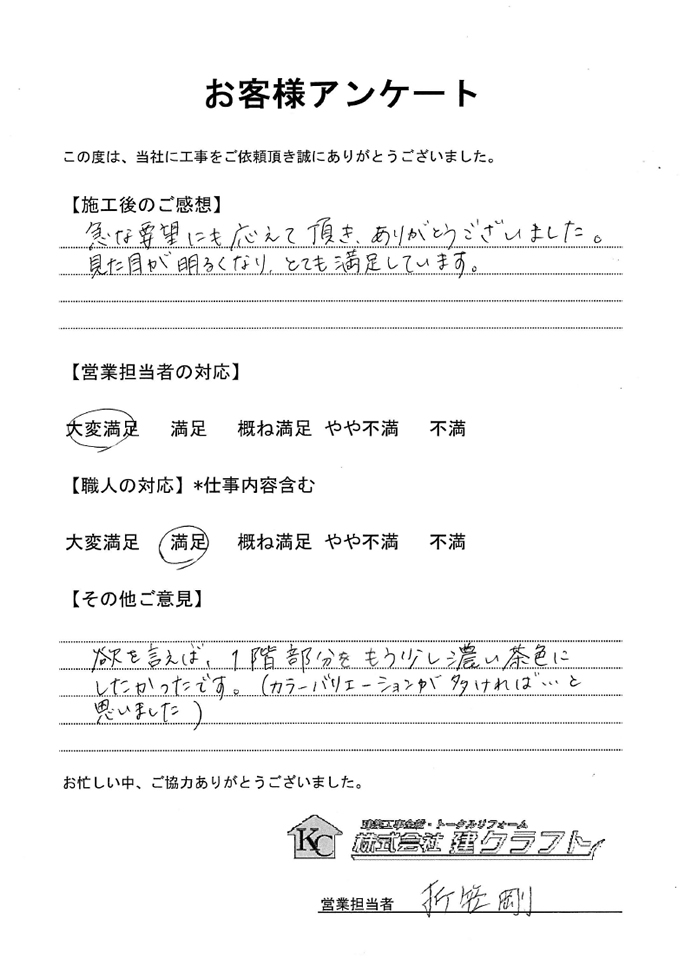 お客様アンケート
この度は、当社に工事をご依頼頂き誠にありがとうございました。
【施工後のご感想】
急な要望にも応えて頂き、ありがとうございました。
見た目が明るくなり、とても満足しています。
【営業担当者の対応】
大変満足 満足 概ね満足 やや不満 不満
【職人の対応】*仕事内容含む
大変満足 満足 概ね満足 やや不満 不満
【その他ご意見】
欲を言えば、1階部分をもう少し濃い茶色に
したかったです。(カラーバリエーションが多ければ…と
思いました)
お忙しい中、ご協力ありがとうございました。
建築工事全般・トータルリフォーム
KC 株式会社 建クラフト
営業担当者 折笠 剛